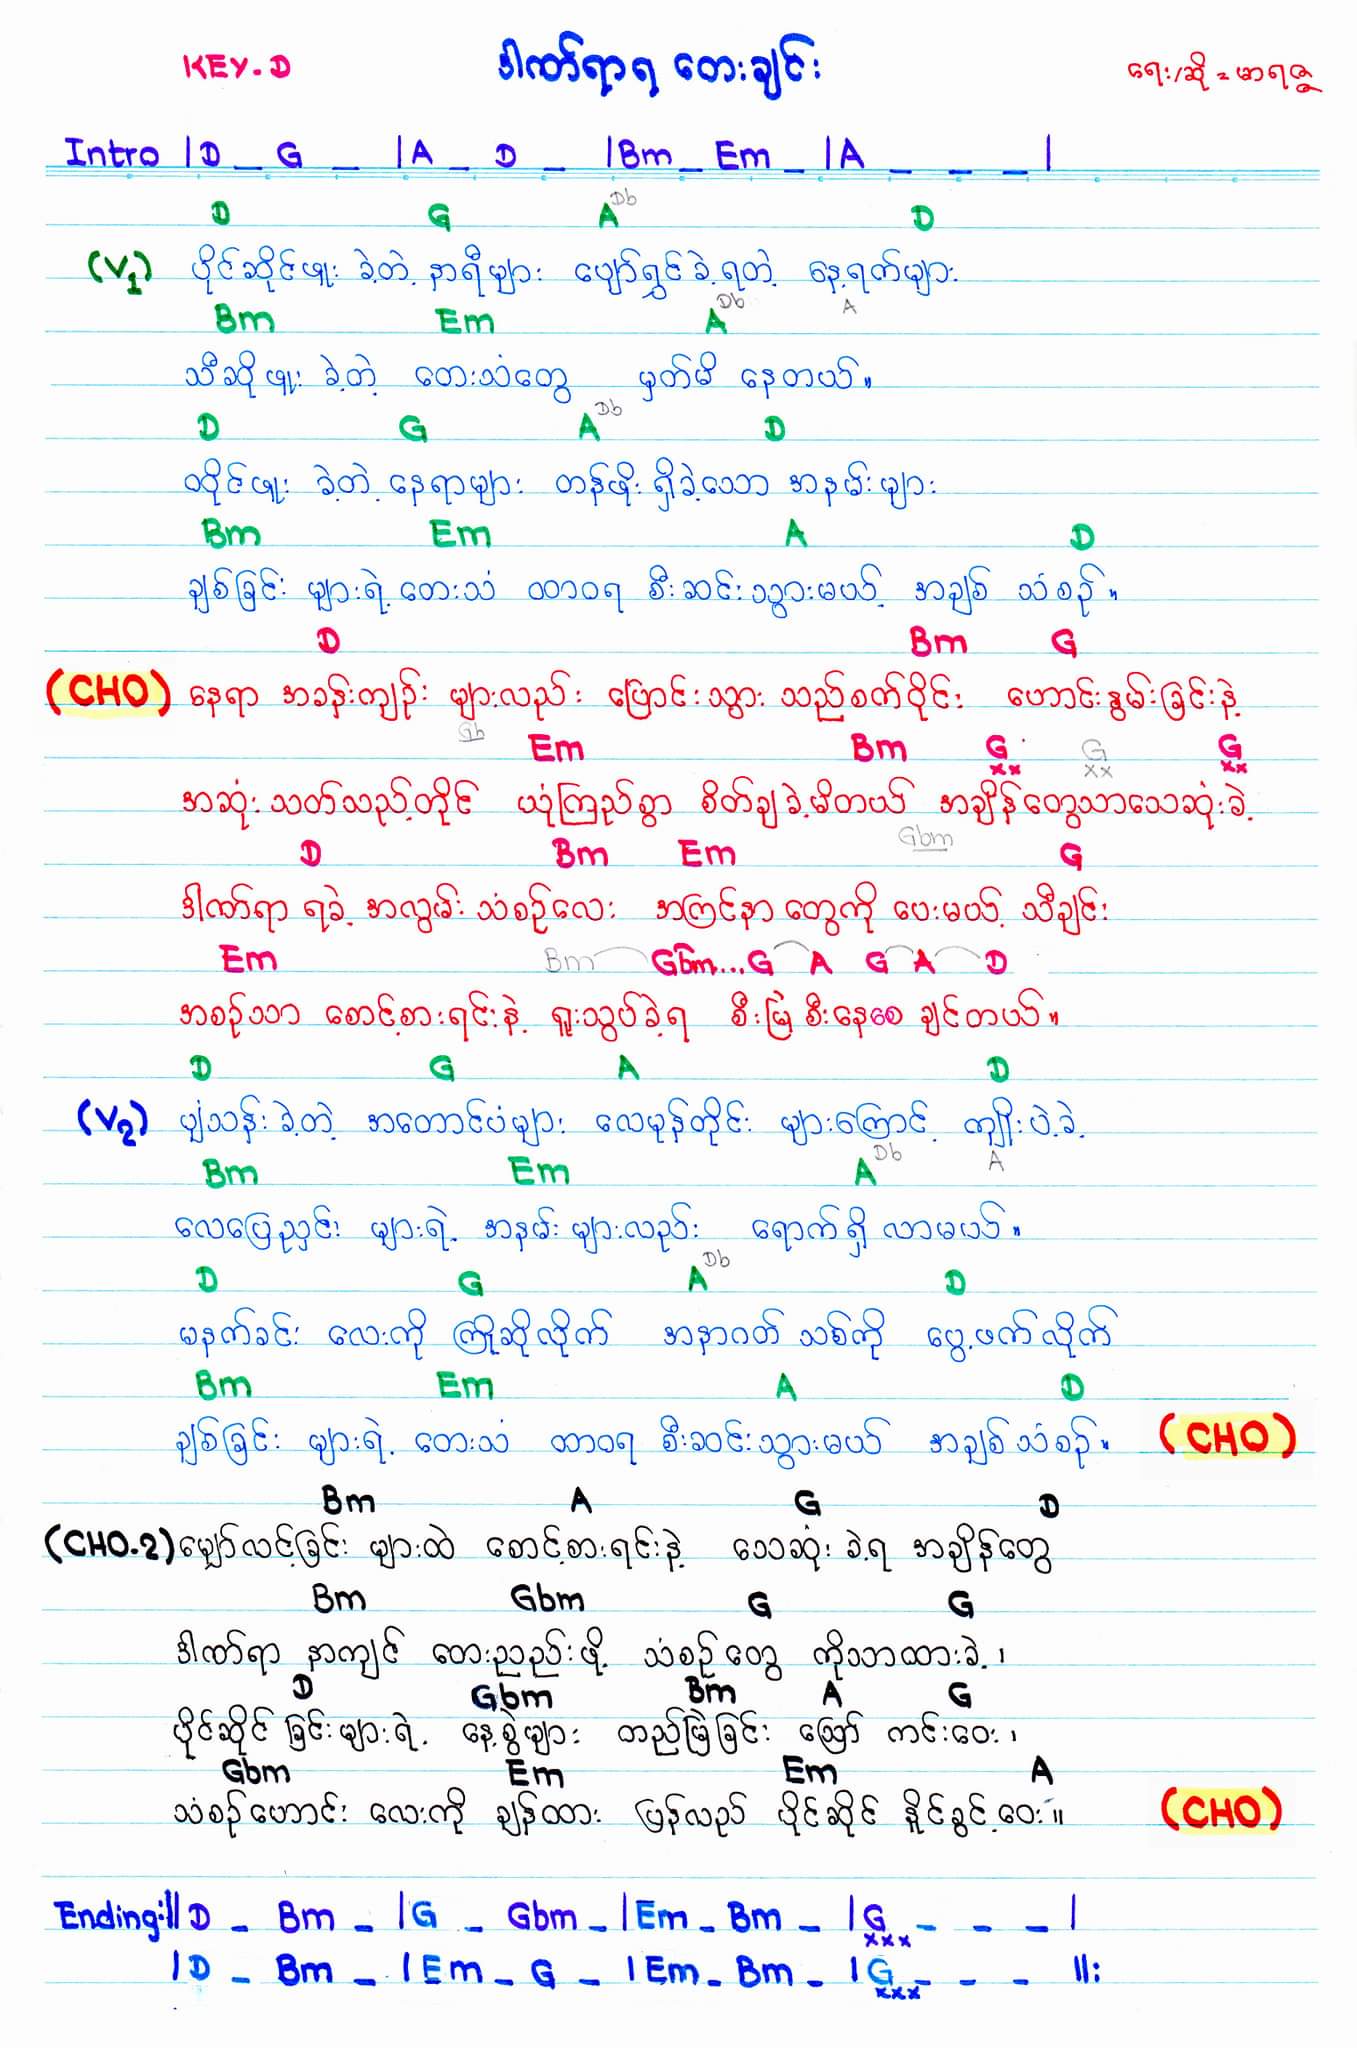 KEY.D ဒါဏ်ရာရ တေးချင်း ရေး/ဆို = မာရဇ္ဇ
Intro |D _ G _ |A _ D _ |Bm _ Em _ |A _ _ _ |
D G A Db D
(V1) ပိုင်ဆိုင်ဖူး ခဲ့တဲ့ နာရီများ ပျော်ရွှင်ခဲ့ရတဲ့ နေ့ရက်များ
Bm Em A Db A
သီဆိုဖူး ခဲ့တဲ့ တေးသံတွေ မှတ်မိ နေတယ်။
D G A Db D
ထိုင်ဖူး ခဲ့တဲ့ နေရာများ တန်ဖိုး ရှိခဲ့သော အနမ်းများ
Bm Em A D
ချစ်ခြင်း များရဲ့ တေးသံ ထာဝရ စီးဆင်းသွားမယ့် အချစ် သံစဉ်။
D Bm G
(CHO) နေရာ အခန်းကျဉ်း များလည်း ပြောင်းသွား သည်စက်ဝိုင်း ဟောင်းနွမ်းခြင်းနဲ့
Gb Em Bm G xx G xx G xx
အဆုံးသတ်သည့်တိုင် ယုံကြည်စွာ စိတ်ချခဲ့မိတယ် အချိန်တွေသာသေဆုံးခဲ့
D Bm Em Gbm G
ဒါဏ်ရာ ရခဲ့ အလွမ်း သံစဉ်လေး အကြင်နာ တွေကို ပေးမယ့် သီချင်း
Em Bm Gbm...G A G A D
အစဉ်သာ စောင့်စားရင်းနဲ့ ရူးသွပ်ခဲ့ရ စီးမြဲ စီးနေစေ ချင်တယ်။
D G A D
(V2) ပျံသန်းခဲ့တဲ့ အတောင်ပံများ လေမုန်တိုင်း များကြောင့် ကျိုးပဲ့ခဲ့
Bm Em A Db A
လေပြေညှင်း များရဲ့ အနမ်းများလည်း ရောက်ရှိ လာမယ်။
D G A Db D
မနက်ခင်း လေးကို ကြိုဆိုလိုက် အနာဂတ် သစ်ကို ပွေ့ဖက်လိုက်
Bm Em A D
ချစ်ခြင်း များရဲ့ တေးသံ ထာဝရ စီးဆင်းသွားမယ် အချစ်သံစဉ်။ (CHO)
Bm A G D
(CHO.2) မျှော်လင့်ခြင်း များထဲ စောင့်စားရင်းနဲ့ သေဆုံး ခဲ့ရ အချိန်တွေ
Bm Gbm G G
ဒါဏ်ရာ နာကျင် တေးညည်းဖို့ သံစဉ်တွေ ကိုသာထားခဲ့၊
D Gbm Bm A G
ပိုင်ဆိုင် ခြင်းများရဲ့ နေ့စွဲများ တည်မြဲခြင်း သြော် ကင်းဝေး၊
Gbm Em Em A
သံစဉ်ဟောင်း လေးကို ချန်ထား ပြန်လည် ပိုင်ဆိုင် နိုင်ခွင့်ဝေး။ (CHO)
Ending:|| D _ Bm _ |G _ Gbm _ |Em _ Bm _ |G xxx _ _ _ |
|D _ Bm _ |Em _ G _ |Em _ Bm _ |G xxx _ _ _ ||: